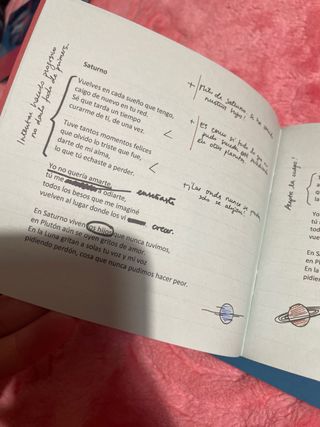 Saturno
Vuelves en cada sueño que tengo,
caigo de nuevo en tu red.
Sé que tarda un tiempo
curarme de ti, de una vez.
Tuve tantos momentos felices
que olvido lo triste que fue,
darte de mi alma,
lo que tú echaste a perder.
Yo no quería amarte,
tú me a odiarte, enseñaste
todos los besos que me imaginé
vuelven al lugar donde los vi crecer.
En Saturno viven los hijos que nunca tuvimos,
en Plutón aún se oyen gritos de amor.
En la Luna gritan a solas tu voz y mi voz
pidiendo perdón, cosa que nunca pudimos hacer peor.
Intentar hacerlo
no darlo todo de primeras.
+ de Saturno
nuestros hijos?
+ es como si todo lo que
pudo
en otro planeta.
+ ¿Las ondas nunca se
solo se alejan?